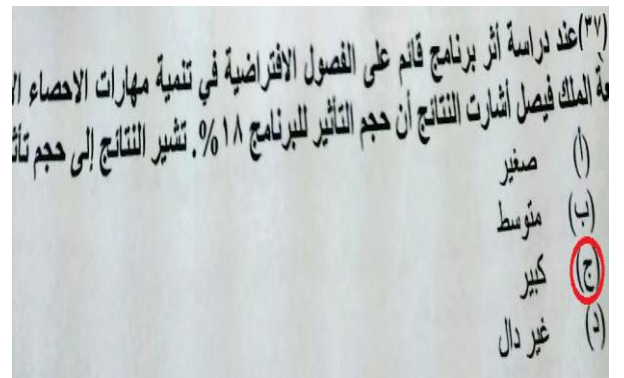 (٣٧)عند دراسة أثر برنامج قائم على الفصول الافتراضية في تنمية مهارات الاحصاء
الملك فيصل أشارت النتائج أن حجم التأثير للبرنامج ١٨%. تشير النتائج إلى حجم
(أ) صغير
(ب) متوسط
(ج) كبير
(د) غير دال